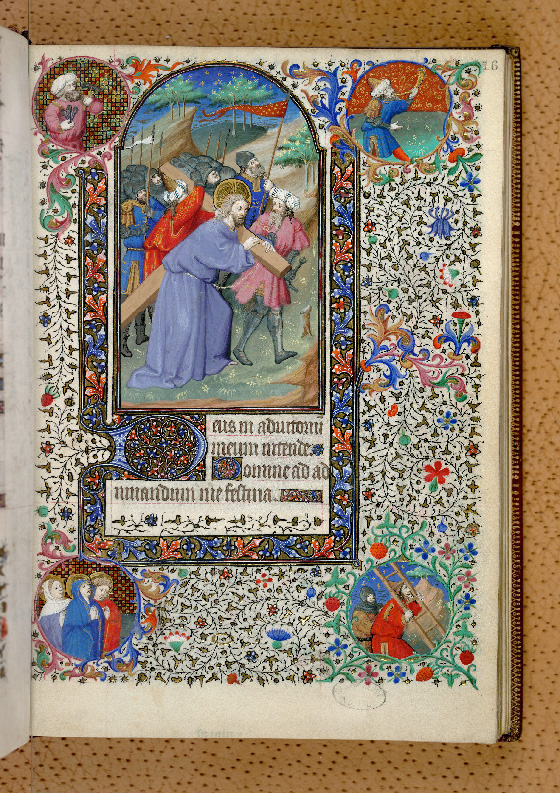 16
eus in adiutorium
meum intende
Domine ad ad
iuuandum me festina.